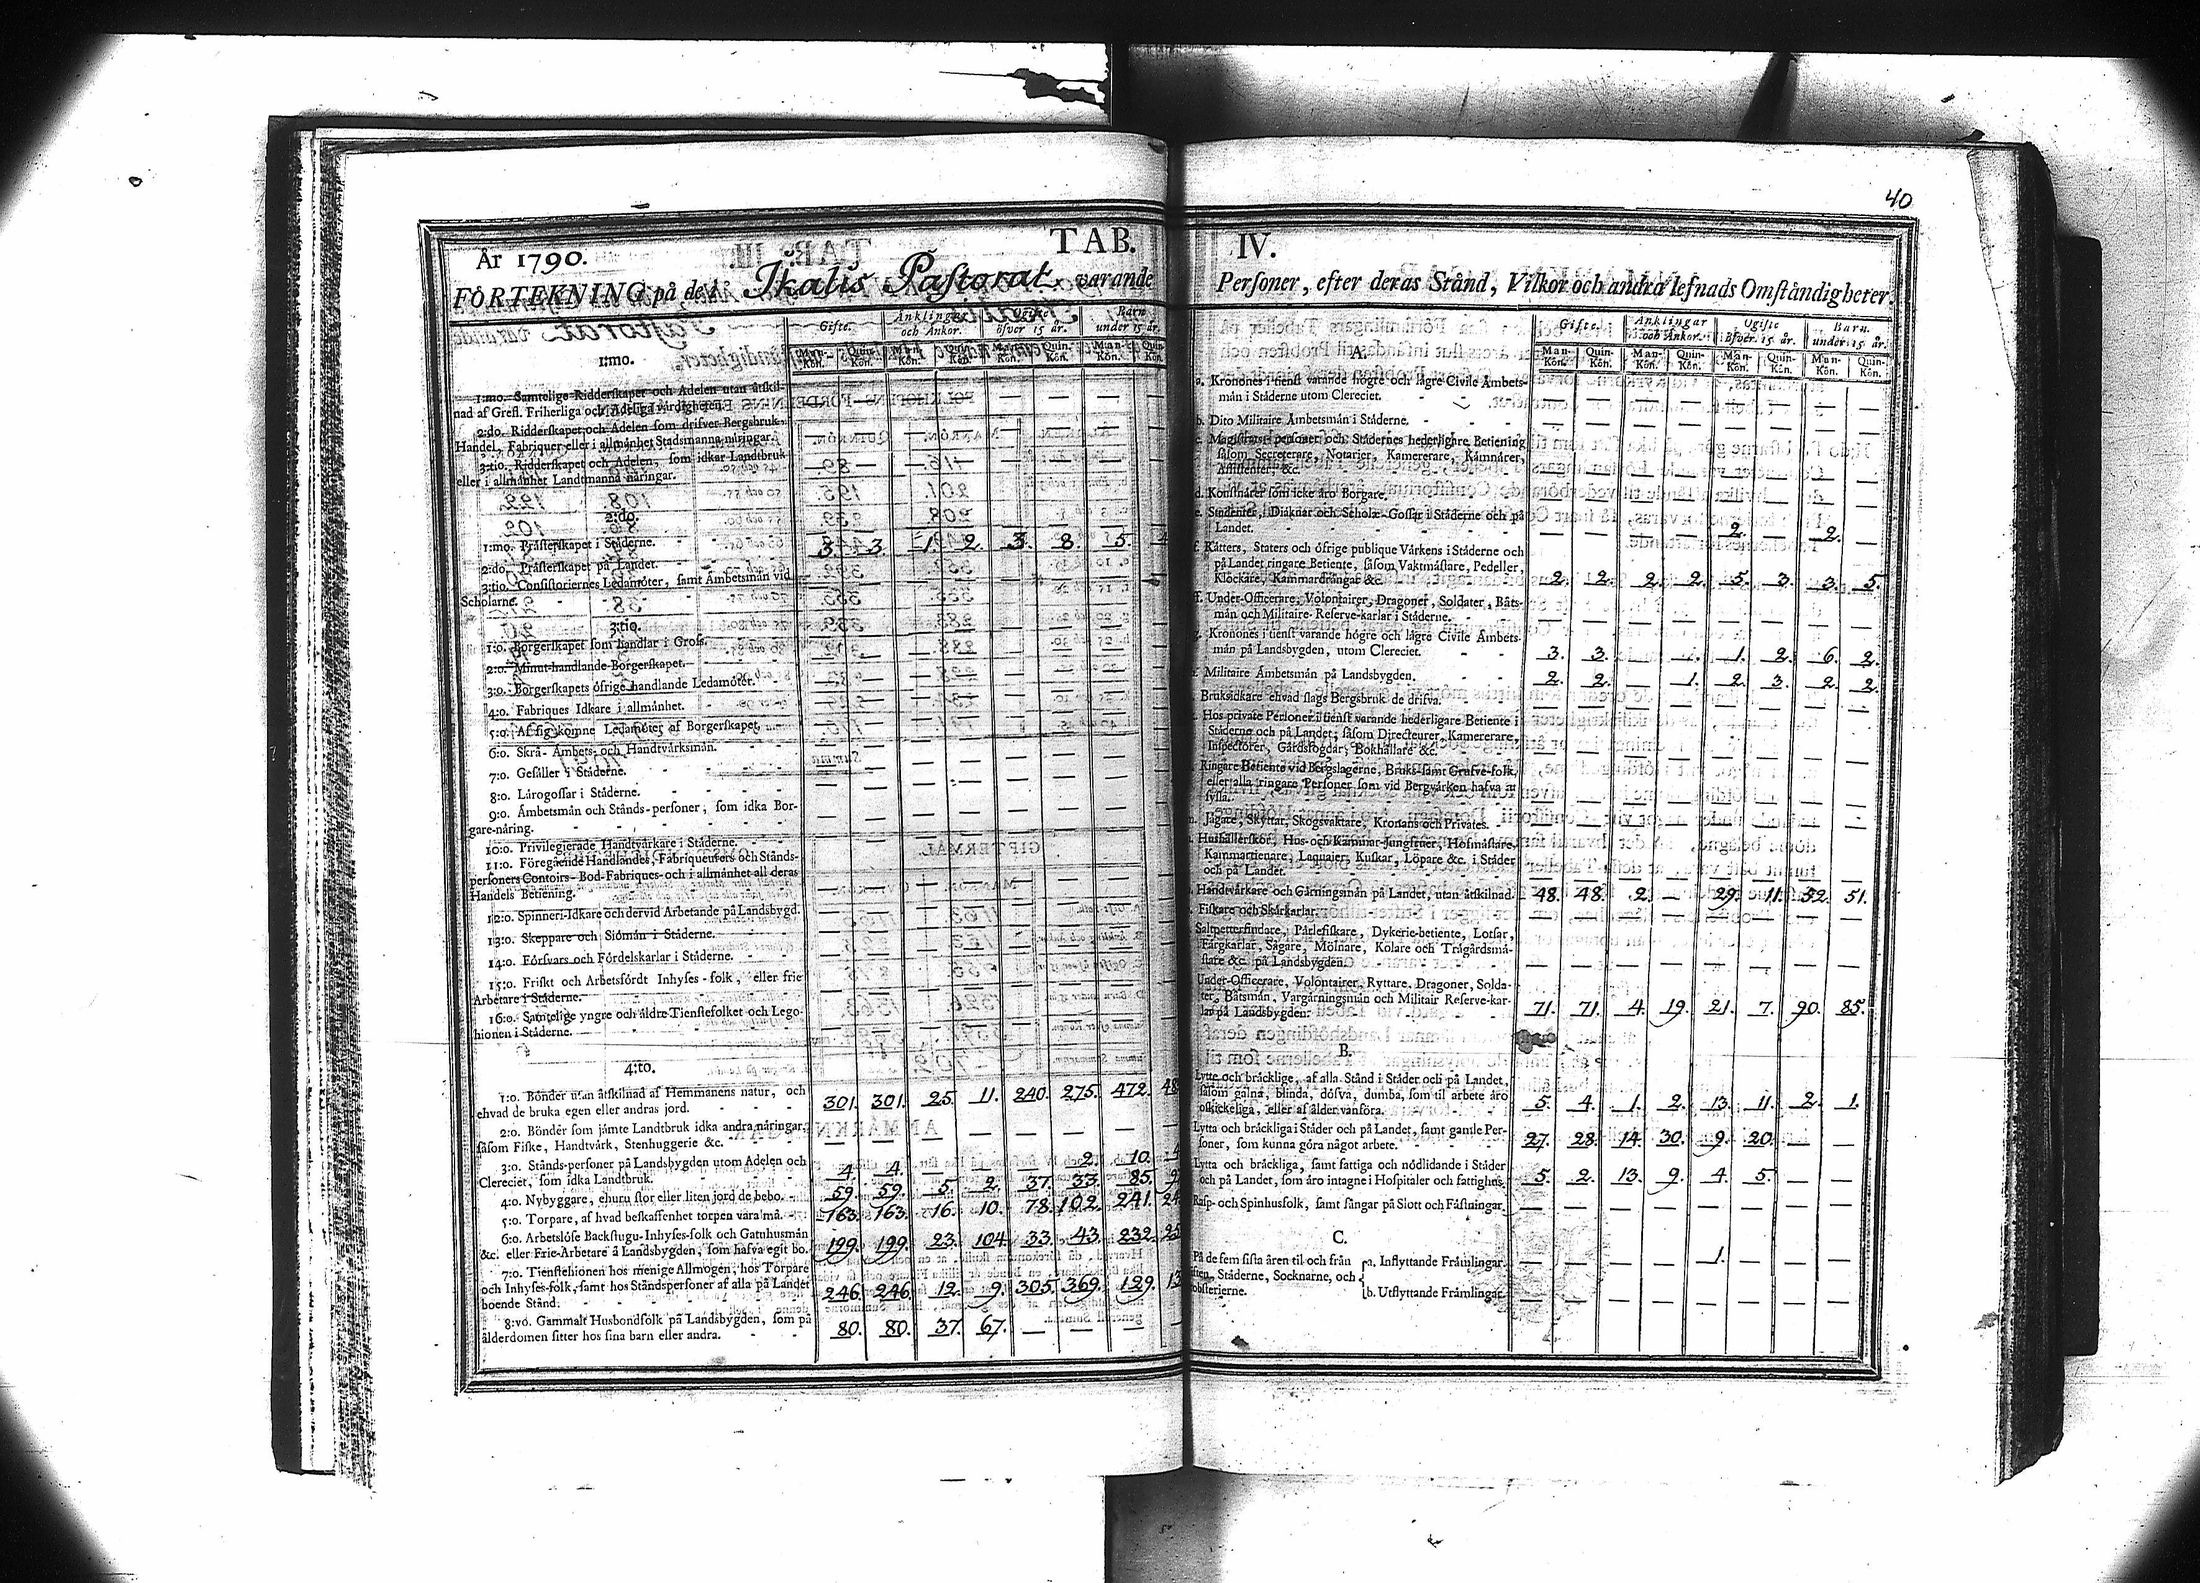 40
År 1790.
TAB.
FÖRTEKNING på de i Ikalis Pastorat varande
Gifte. Änklingar och Änkor. Ogifte öfver 15 år. Barn under 15 år.
Man-Kön. Quin-Kön. Man-Kön. Quin-Kön. Man-Kön. Quin-Kön. Man-Kön. Quin-Kön.
1:mo.
1:mo. Samtelige Ridderskapet och Adelen utan åtskil-
nad af Grefl. Friherliga och Adeliga värdigheter.
2:do. Ridderskapet och Adelen som drifver Bergsbruk,
Handel, Fabriquer eller i allmänhet Stadsmanna näringar.
3:tio. Ridderskapet och Adelen, som idkar Landtbruk
eller i allmänhet Landtmanna näringar.
2:do.
1:mo. Prästerskapet i Städerne.
2:do. Prästerskapet på Landet. 3. 3. 1. 2. 3. 8. 5.
3:tio. Consistoriernes Ledamöter, samt Ämbetsmän vid
Scholarne.
3:tio.
1:o. Borgerskapet som handlar i Gross.
2:o. Minut-handlande Borgerskapet.
3:o. Borgerskapets öfrige handlande Ledamöter.
4:o. Fabriques Idkare i allmänhet.
5:o. Af sig komne Ledamöter af Borgerskapet.
6:o. Skrå- Ämbets- och Handtvärksmän.
7:o. Gesäller i Städerne.
8:o. Lärogossar i Städerne.
9:o. Ämbetsmän och Stånds-personer, som idka Bor-
gare-näring.
10:o. Privilegierade Handtvärkare i Städerne.
11:o. Föregående Handlandes, Fabriqueurers och Stånds-
personers Contoirs- Bod-Fabriques- och i allmänhet all deras
Handels Betiening.
12:o. Spinneri-Idkare och dervid Arbetande på Landsbygd.
13:o. Skeppare och Siömän i Städerne.
14:o. Försvars och Fördelskarlar i Städerne.
15:o. Friskt och Arbetsfördt Inhyses-folk, eller frie
Arbetare i Städerne.
16:o. Samtelige yngre och äldre Tienstefolket och Lego-
hionen i Städerne.
4:to.
1:o. Bönder utan åtskilnad af Hemmanens natur, och
ehvad de bruka egen eller andras jord. 301. 301. 25. 11. 240. 275. 472.
2:o. Bönder som jämte Landtbruk idka andra näringar,
såsom Fiske, Handtvärk, Stenhuggerie &c.
3:o. Stånds-personer på Landsbygden utom Adelen och
Clereciet, som idka Landtbruk. 4. 4. 2. 10.
4:o. Nybyggare, ehuru stor eller liten jord de bebo. 59. 59. 5. 2. 37. 33. 85.
5:o. Torpare, af hvad beskaffenhet torpen vara må. 163. 163. 16. 10. 78. 102. 241.
6:o. Arbetslöse Backstugu-Inhyses-folk och Gatuhusmän
&c. eller Frie-Arbetare å Landsbygden, som hafva egit bo. 199. 199. 23. 104. 33. 43. 232.
7:o. Tienstehionen hos menige Allmogen, hos Torpare
och Inhyses-folk, samt hos Ståndspersoner af alla på Landet
boende Stånd. 246. 246. 12. 9. 305. 369. 129.
8:vo. Gammalt Husbondfolk på Landsbygden, som på
ålderdomen sitter hos sina barn eller andra. 80. 80. 37. 67.
IV.
Personer, efter deras Stånd, Vilkor och andra lefnads Omständigheter.
Gifte. Änklingar och Änkor. Ogifte öfver 15 år. Barn. under 15 år.
Man-Kön. Quin-Kön. Man-Kön. Quin-Kön. Man-Kön. Quin-Kön. Man-Kön. Quin-Kön.
A.
a. Kronones i tienst varande högre och lägre Civile Ämbets-
män i Städerne utom Clereciet.
b. Dito Militaire Ämbetsmän i Städerne.
c. Magistrats-personer och Städernes hederligare Betiening
såsom Secreterare, Notarier, Kamererare, Kämnärer,
Assistenter, &c.
d. Konstnärer som icke äro Borgare.
e. Studenter, Diäknar och Scholæ-Gossar i Städerne och på
Landet. 2. 2.
f. Kätters, Staters och öfrige publique Värkens i Städerne och
på Landet ringare Betiente, såsom Vaktmästare, Pedeller,
Klockare, Kammardrängar &c. 2. 2. 2. 2. 5. 3. 3. 5.
ff. Under-Officerare, Volontairer, Dragoner, Soldater, Båts-
män och Militaire-Reserve-karlar i Städerne.
g. Kronones i tienst varande högre och lägre Civile Ämbets-
män på Landsbygden, utom Clereciet. 3. 3. 1. 1. 2. 6. 2.
Militaire Ämbetsmän på Landsbygden. 2. 2. 1. 2. 3. 2. 2.
Bruksidkare ehvad slags Bergsbruk de drifva.
Hos private Personer i tienst varande hederligare Betiente i
Städerne och på Landet, såsom Directeurer, Kamererare,
Inspectorer, Gårdsfogdar, Bokhållare &c.
Ringare Betiente vid Bergslagerne, Bruks- samt Grufve-folk,
eller alla ringare Personer som vid Bergvärken hafva
syssla.
Jägare, Skyttar, Skogsvaktare, Kronans och Privates.
Hushållerskor, Hus- och Kammar-Jungfruer, Hofmästare,
Kammartienare, Laquaier, Kuskar, Löpare &c. i Städer
och på Landet.
Handtvärkare och Gärningsmän på Landet, utan åtskilnad. 48. 48. 2. 29. 11. 52. 51.
Fiskare och Skärkarlar.
Saltpetterfiudare, Pärlefiskare, Dykerie-betiente, Lotsar,
Färgkarlar, Sågare, Mölnare, Kolare och Trägårdsmä-
stare &c. på Landsbygden.
Under-Officerare, Volontairer, Ryttare, Dragoner, Solda-
ter, Båtsmän, Vargärningsmän och Militair Reserve-kar-
lar på Landsbygden. 71. 71. 4. 19. 21. 7. 90. 85.
B.
Lytte och bräcklige, af alla Stånd i Städer och på Landet,
såsom galna, blinda, döfva, dumba, som til arbete äro
oskickeliga, eller af ålder vanföra. 5. 4. 1. 2. 13. 11. 2. 1.
Lytta och bräckliga i Städer och på Landet, samt gamle Per-
soner, som kunna göra något arbete. 27. 28. 14. 30. 9. 20.
Lytta och bräckliga, samt fattiga och nödlidande i Städer
och på Landet, som äro intagne i Hospitaler och fattighus. 5. 2. 13. 9. 4. 5.
Rasp- och Spinhusfolk, samt fångar på Slott och Fästningar.
C.
På de fem sista åren til och från a. Inflyttande Främlingar. 1.
Städerne, Socknarne, och
b. Utflyttande Främlingar.